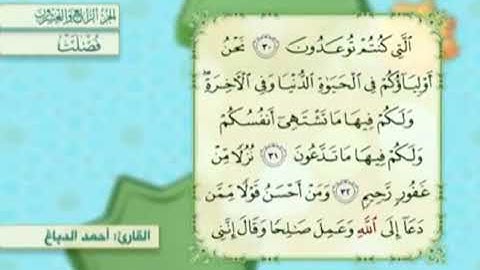 الجزء الرابع والعشرون
فُصِّلَتْ
الَّتِي كُنتُمْ تُوعَدُونَ ﴿٣٠﴾ نَحْنُ
أَوْلِيَاؤُكُمْ فِي الْحَيَوٰةِ الدُّنْيَا وَفِي الْآخِرَةِ ۖ
وَلَكُمْ فِيهَا مَا تَشْتَهِيٓ أَنفُسُكُمْ
وَلَكُمْ فِيهَا مَا تَدَّعُونَ ﴿٣١﴾ نُزُلًا مِّنْ
غَفُورٍ رَّحِيمٍ ﴿٣٢﴾ وَمَنْ أَحْسَنُ قَوْلًا مِّمَّن
دَعَآ إِلَى اللَّهِ وَعَمِلَ صَٰلِحًا وَقَالَ إِنَّنِي
القارئ: أحمد الدباغ